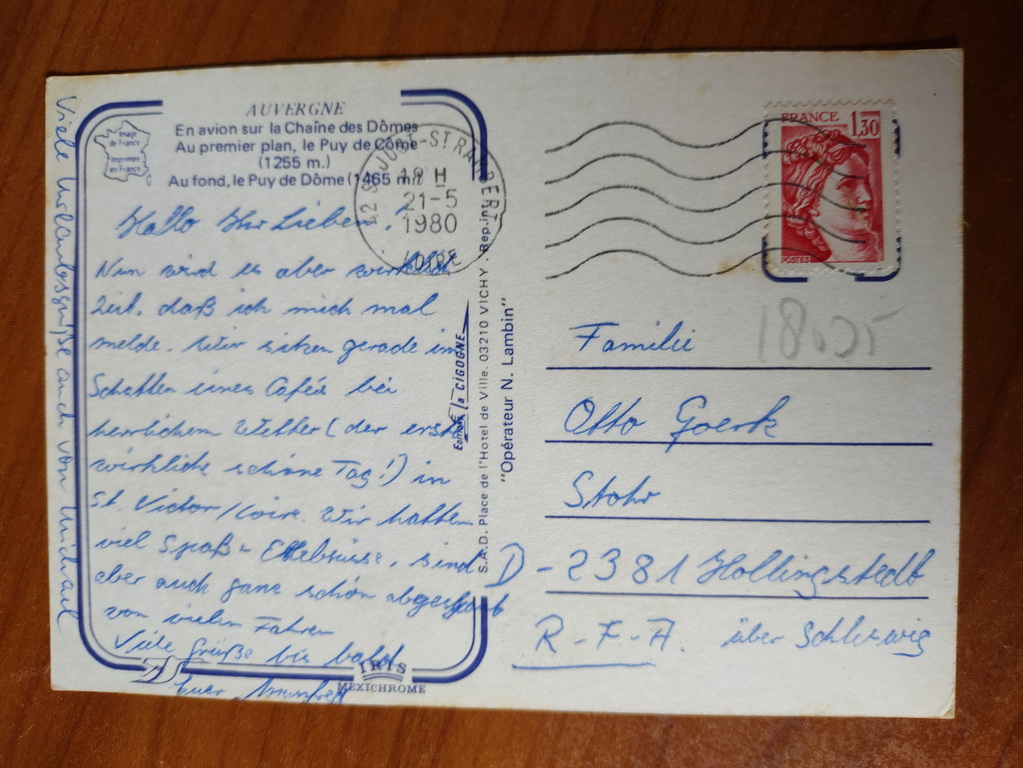 AUVERGNE
En avion sur la Chaîne des Dômes
Au premier plan, le Puy de Côme
(1255 m.)
Au fond, le Puy de Dôme (1465 m.)
Image
de France
Imprimée
en France
Hallo Ihr Lieben!
Nun wird es aber wirklich
Zeit, daß ich mich mal
melde. Wir sitzen gerade im
Schatten eines Cafés bei
herrlichem Wetter (der erste
wirkliche schöne Tag!) in
St. Victor/Loire. Wir hatten
viel Spaß, sind
aber auch ganz schön abgeschlafft
von vielen Fahren
Viele Grüße bis bald
Euer Manfred
Viele Urlaubsgrüße auch von Michael
IRIS
MEXICHROME
42 ST JUST-ST RAMBERT
18 H
21-5
1980
LOIRE
Editions la CIGOGNE
S.A.D. Place de l'Hotel de Ville. 03210 VICHY - Rep.int.
"Opérateur N. Lambin"
FRANCE 1,30
POSTES
18635
Familie
Otto Goerk
Stohr
D-2381 Hollingstedt
R-F-A. über Schleswig